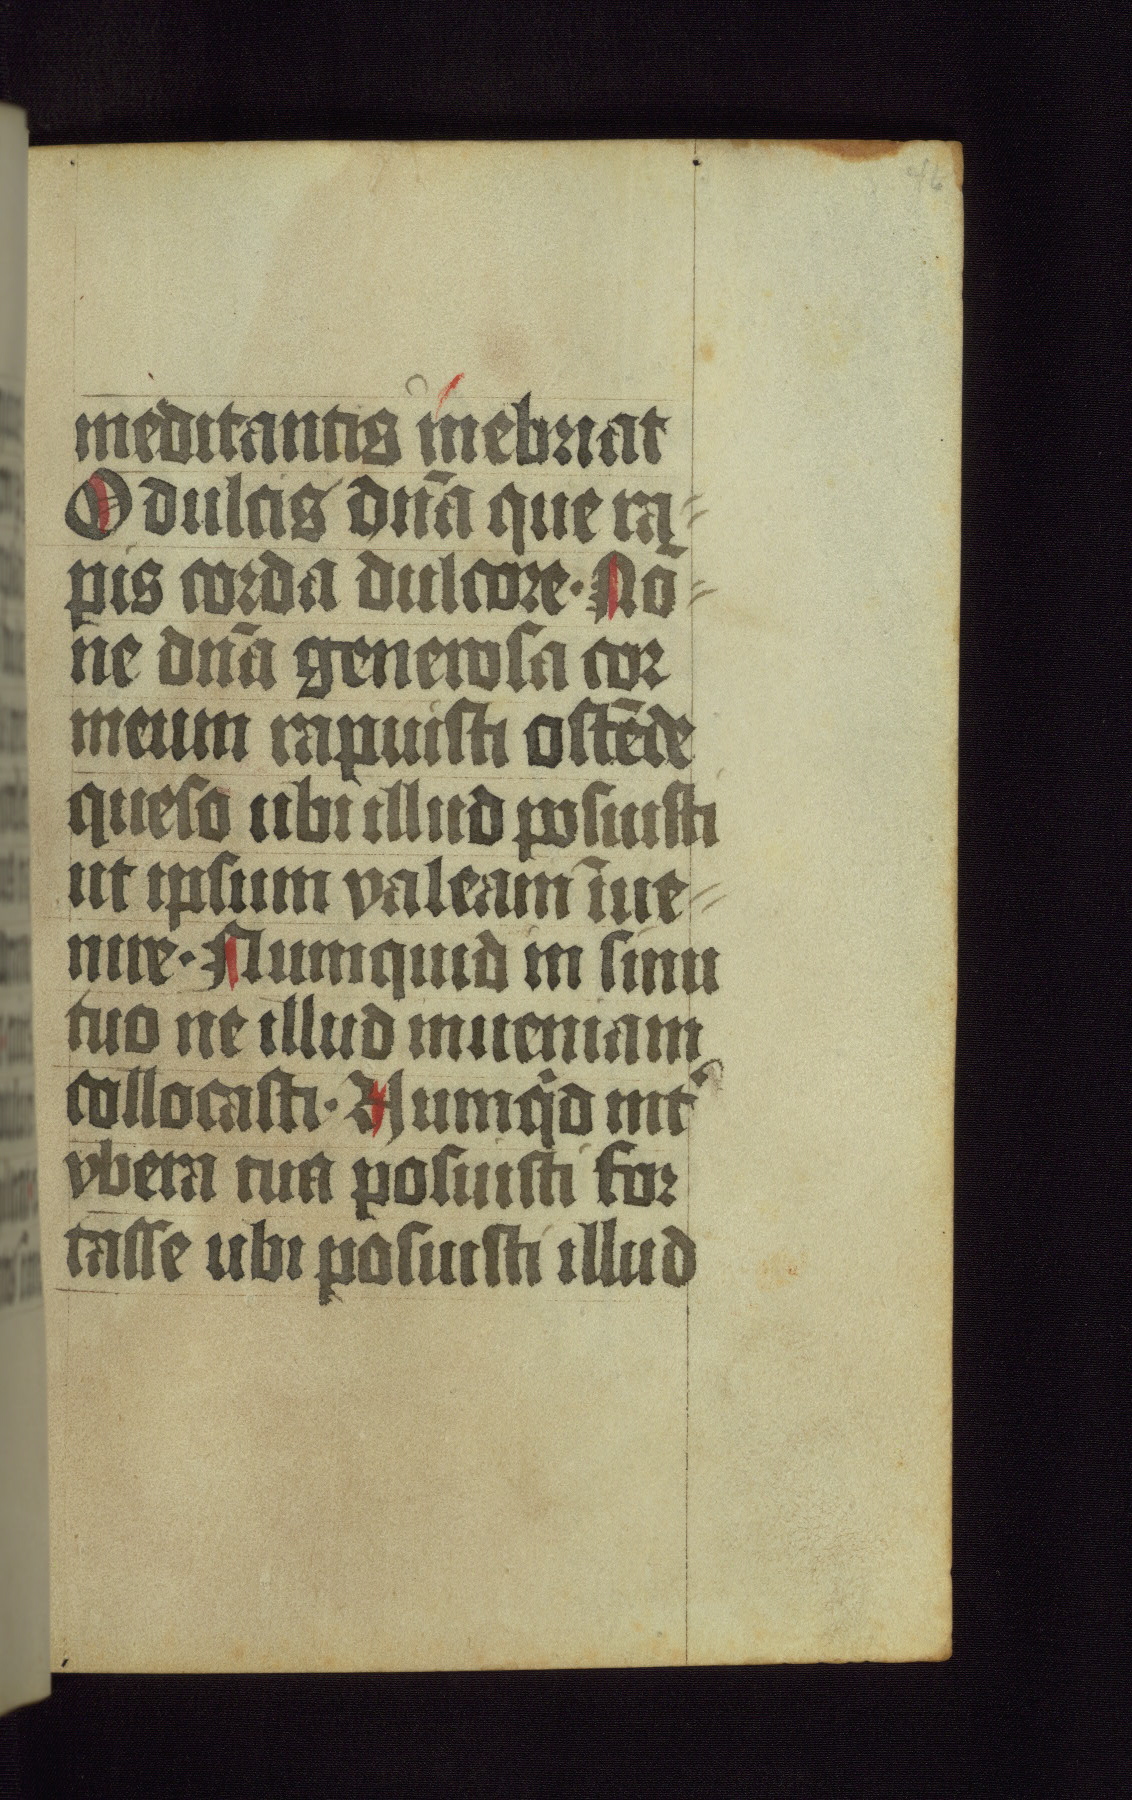 46
meditantis inebriat
O dulcis dn̄a que ra⸗
pis corda dulcore· Nō⸗
ne dn̄a generosa cor
meum rapuisti ostēde
queso ubi illud posuisti
ut ipsum valeam īue⸗
nire· Numquid in sinu
tuo ne illud inueniam
collocasti· Numqͥd int᷑
vbera tua posuisti for
tasse ubi posuisti illud